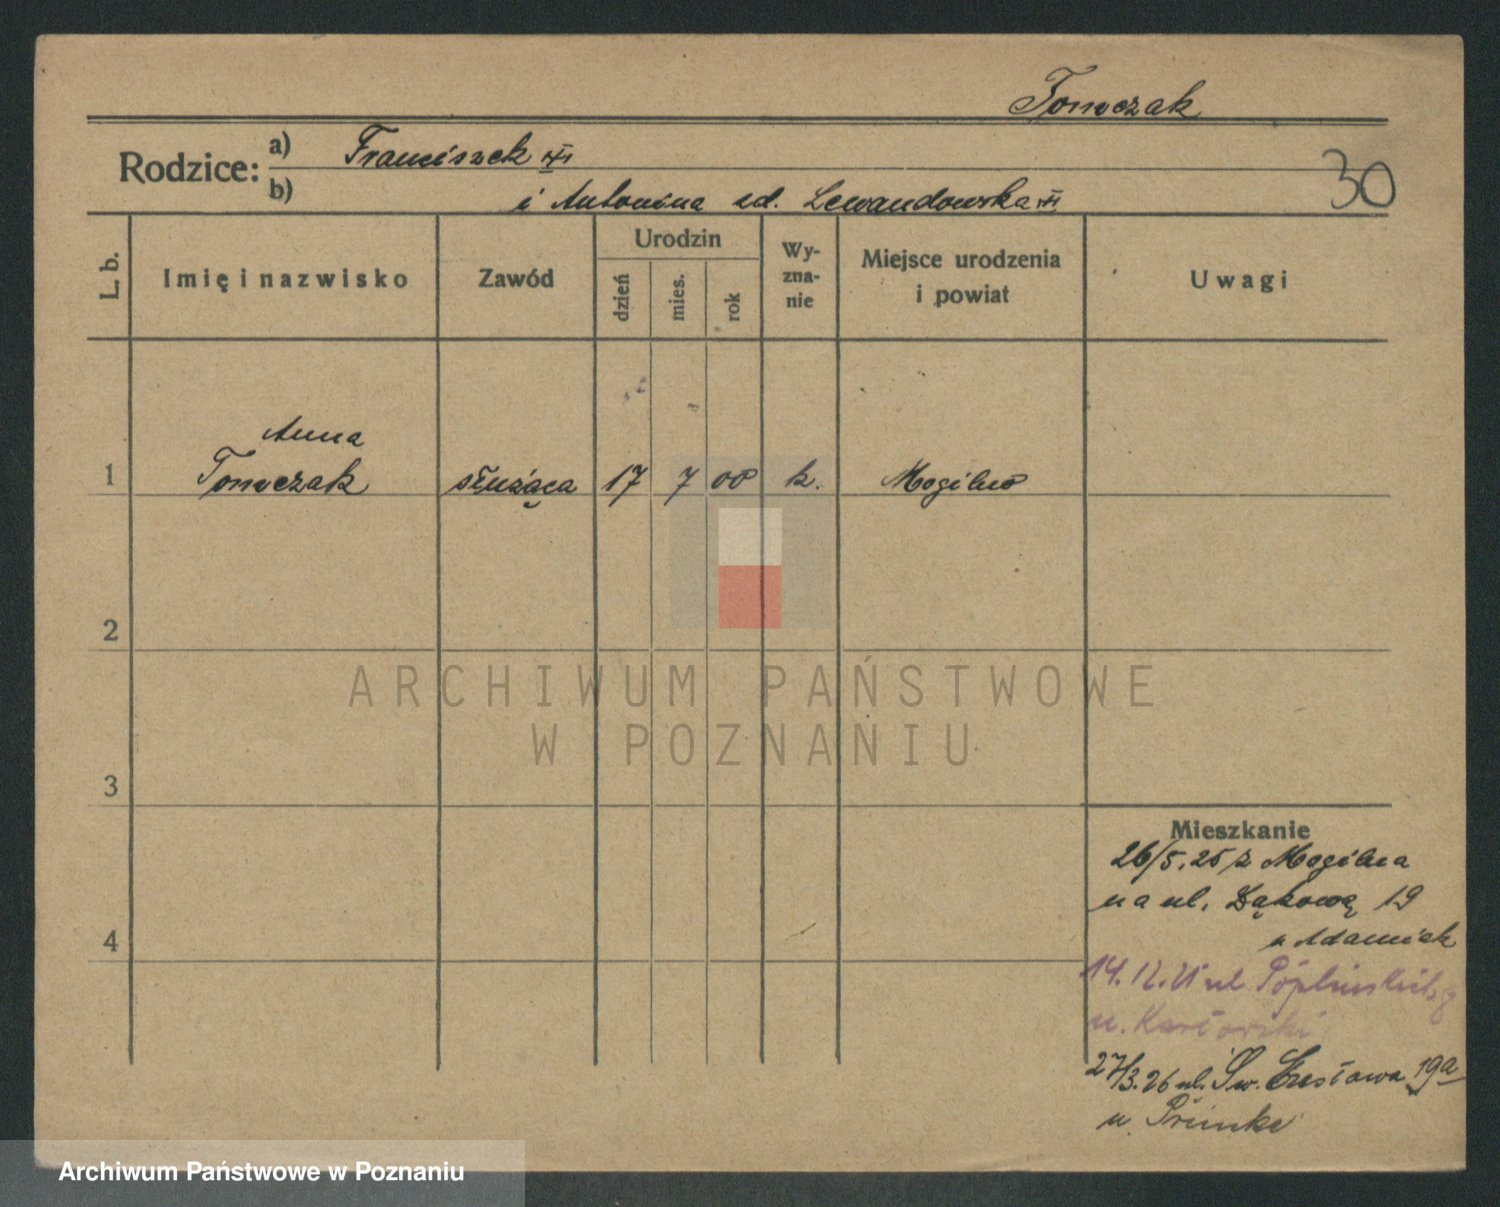 Tomczak
Rodzice: a) Franciszek
b) i Antonina zd. Lewandowska
30
L. b.
Imię i nazwisko
Zawód
Urodzin
dzień
mies.
rok
Wy-
zna-
nie
Miejsce urodzenia
i powiat
Uwagi
Anna
1 Tomczak służąca 17 7 00 k. Mogilno
2
3
4
Mieszkanie
26/5.25 z Mogilna
na ul. Łąkową 19
u Adamiak
14.12. ul
u. Karłowski
27/3.26 ul. Św. Czesława 19a
u Primke
ARCHIWUM PAŃSTWOWE
W POZNANIU
Archiwum Państwowe w Poznaniu